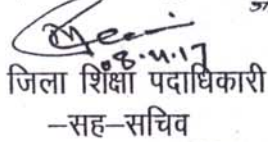 08.4.17
जिला शिक्षा पदाधिकारी
-सह-सचिव